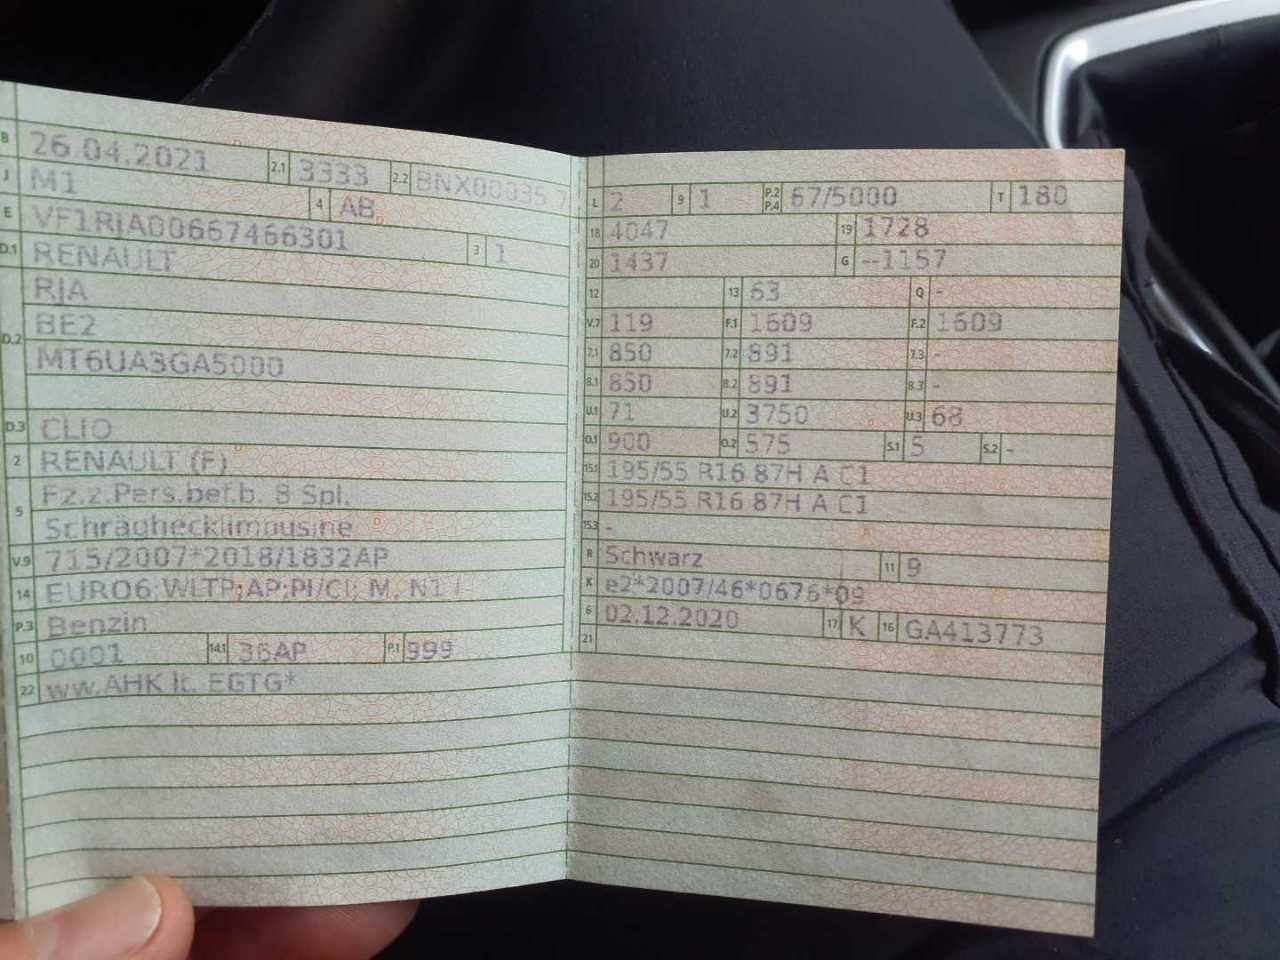 B 26.04.2021 2.1 3333 2.2 BNX00035 7
J M1 4 AB
E VF1RJA00667466301 3 1
D.1 RENAULT
RJA
D.2 BE2
MT6UA3GA5000
D.3 CLIO
2 RENAULT (F)
5 Fz.z.Pers.bef.b. 8 Spl.
Schräghecklimousine
V.9 715/2007*2018/1832AP
14 EURO6;WLTP;AP;PI/CI; M, N1 I
P.3 Benzin
10 0001 14.1 36AP P.1 999
22 ww.AHK lt. EGTG*
L 2 9 1 P.2 P.4 67/5000 T 180
18 4047 19 1728
20 1437 G --1157
12 13 63 Q -
V.7 119 F.1 1609 F.2 1609
7.1 850 7.2 891 7.3 -
8.1 850 8.2 891 8.3 -
U.1 71 U.2 3750 U.3 68
O.1 900 O.2 575 S.1 5 S.2 -
15.1 195/55 R16 87H A C1
15.2 195/55 R16 87H A C1
15.3 -
R Schwarz 11 9
K e2*2007/46*0676*09
6 02.12.2020 17 K 16 GA413773
21